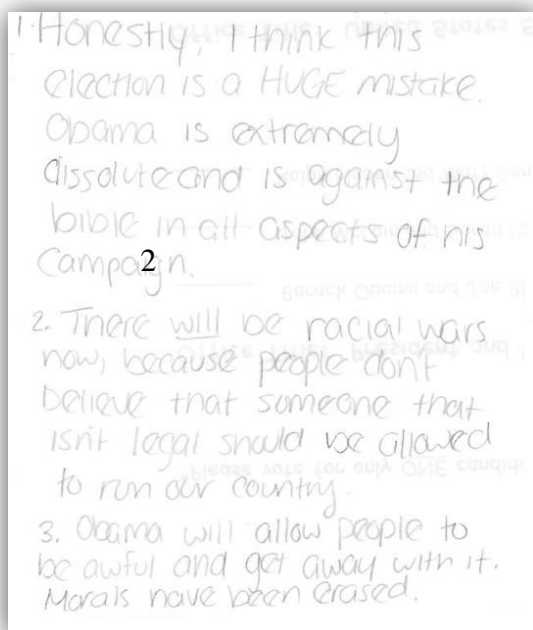 1. Honestly, I think this
election is a HUGE mistake.
Obama is extremely
dissolute and is against the
bible in all aspects of his
campaign.
2
2. There will be racial wars
now, because people don't
believe that someone that
isn't legal should be allowed
to run our country.
3. Obama will allow people to
be awful and get away with it.
Morals have been erased.